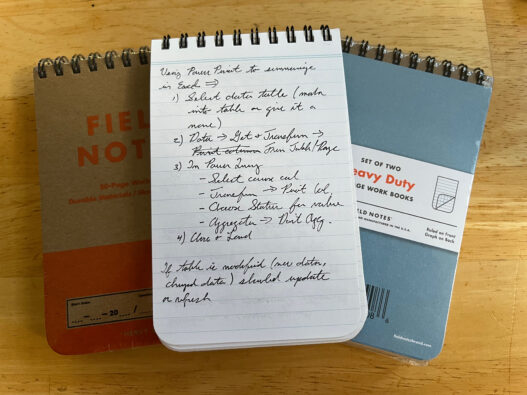 Using Power Pivot to summarize
in Excel ⇒
1) Select data table (make
into table or give it a
name)
2) Data → Get & Transform →
From Table/Range
3) In Power Query
- Select column
- Transform → Pivot Col,
- Choose Status for values
- Aggregate → Don't Agg.
4) Close & Load
If table is modified (new data,
changed data) should update
or refresh
FIEL
NOTE
50-Page Wo
Durable Materials
SET OF TWO
Heavy Duty
GE WORK BOOKS
Ruled on Front
Graph on Back
LD NOTES
MANUFACTURED IN THE U.S.A.
fieldnotesbrand.com
20